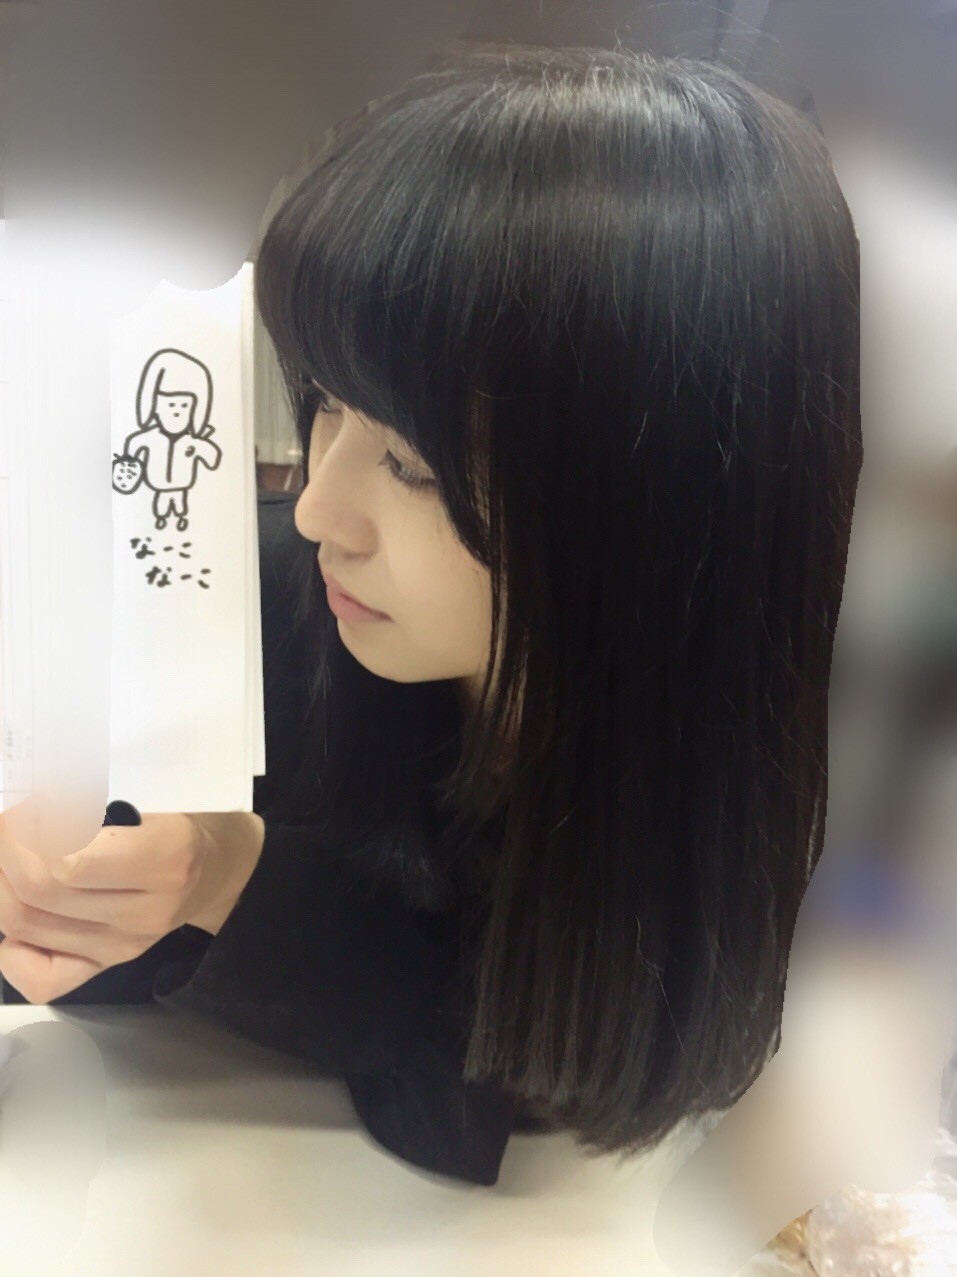 なーこ
なーこ